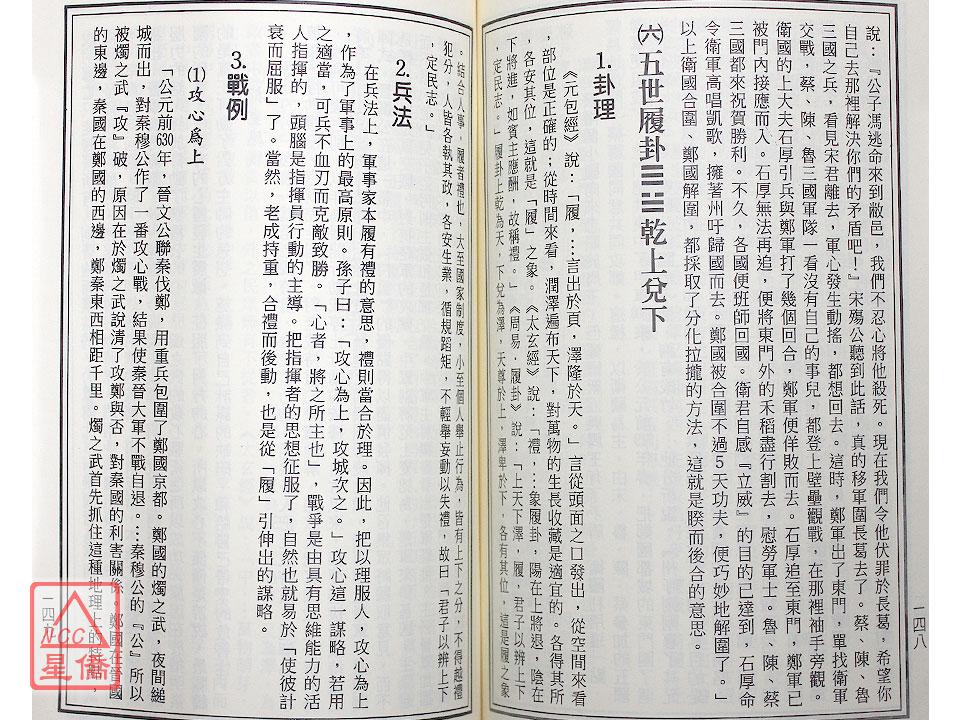 說：『公子馮逃命來到敝邑，我們不忍心將他殺死。現在我們令他伏罪於長葛，希望你
自己去那裡解決你們的矛盾吧！』宋殤公聽到此話，真的移軍圍長葛去了。蔡、陳、魯
三國之兵，看見宋君離去，軍心發生動搖，都想回去。這時，鄭軍出了東門，單找衛軍
交戰，蔡、陳、魯三國軍隊一看沒有自己的事兒，都登上壁壘觀戰，在那裡袖手旁觀。
衛國的上大夫石厚引兵與鄭軍打了幾個回合，鄭軍便佯敗而去。石厚追至東門，鄭軍已
被門內接應而入。石厚無法再追，便將東門外的禾稻盡行割去，慰勞軍士。魯、陳、蔡
三國都來祝賀勝利。不久，各國便班師回國。衛君自感『立威』的目的已達到，石厚命
令衛軍高唱凱歌，擁著州吁歸國而去。鄭國被合圍不過5天功夫，便巧妙地解圍了。」
以上衛國合圍、鄭國解圍，都採取了分化拉攏的方法，這就是睽而後合的意思。
㈥五世履卦☰☱乾上兌下
1.卦理
《元包經》說：「履，…言出於頁，澤隆於天。」言從頭面之口發出，從空間來看
，部位是正確的；從時間來看，潤澤遍布天下，對萬物的生長收藏是適宜的。各得其所
，各安其位，這就是「履」之象。《太玄經》說：「禮，…象履卦，陽在上將退，陰在
下將進，如賓主應酬，故稱禮。」《周易．履卦》說：「上天下澤，履，君子以辨上下
，定民志。」履卦上乾為天，下兌為澤，天尊於上，澤卑於下，各有其位，這是履之象
。結合人事，履者禮也，大至國家制度，小至個人舉止行為，皆有上下之分，不得越禮
犯分，人皆各執其政，各安生業，循規蹈矩，不輕舉妄動以失禮，故曰「君子以辨上下
，定民志。」
2.兵法
在兵法上，軍事家本履有禮的意思，禮則當合於理。因此，把以理服人，攻心為上
，作為了軍事上的最高原則。孫子曰：「攻心為上，攻城次之。」攻心這一謀略，若用
之適當，可兵不血刃而克敵致勝。「心者，將之所主也」，戰爭是由具有思維能力的活
人指揮的，頭腦是指揮員行動的主導。把指揮者的思想征服了，自然也就易於「使彼計
衰而屈服」了。當然，老成持重，合禮而後動，也是從「履」引伸出的謀略。
3.戰例
⑴攻心爲上
「公元前630年，晉文公聯秦伐鄭，用重兵包圍了鄭國京都。鄭國的燭之武，夜間縋
城而出，對秦穆公作了一番攻心戰，結果使秦晉大軍不戰自退。…秦穆公的『公』所以
被燭之武『攻』破，原因在於燭之武說清了攻鄭與否，對秦國的利害關係。鄭國在晉國
的東邊，秦國在鄭國的西邊，鄭秦東西相距千里。燭之武首先抓住這種地理上的特點，
一四八
一四
NCC
星僑